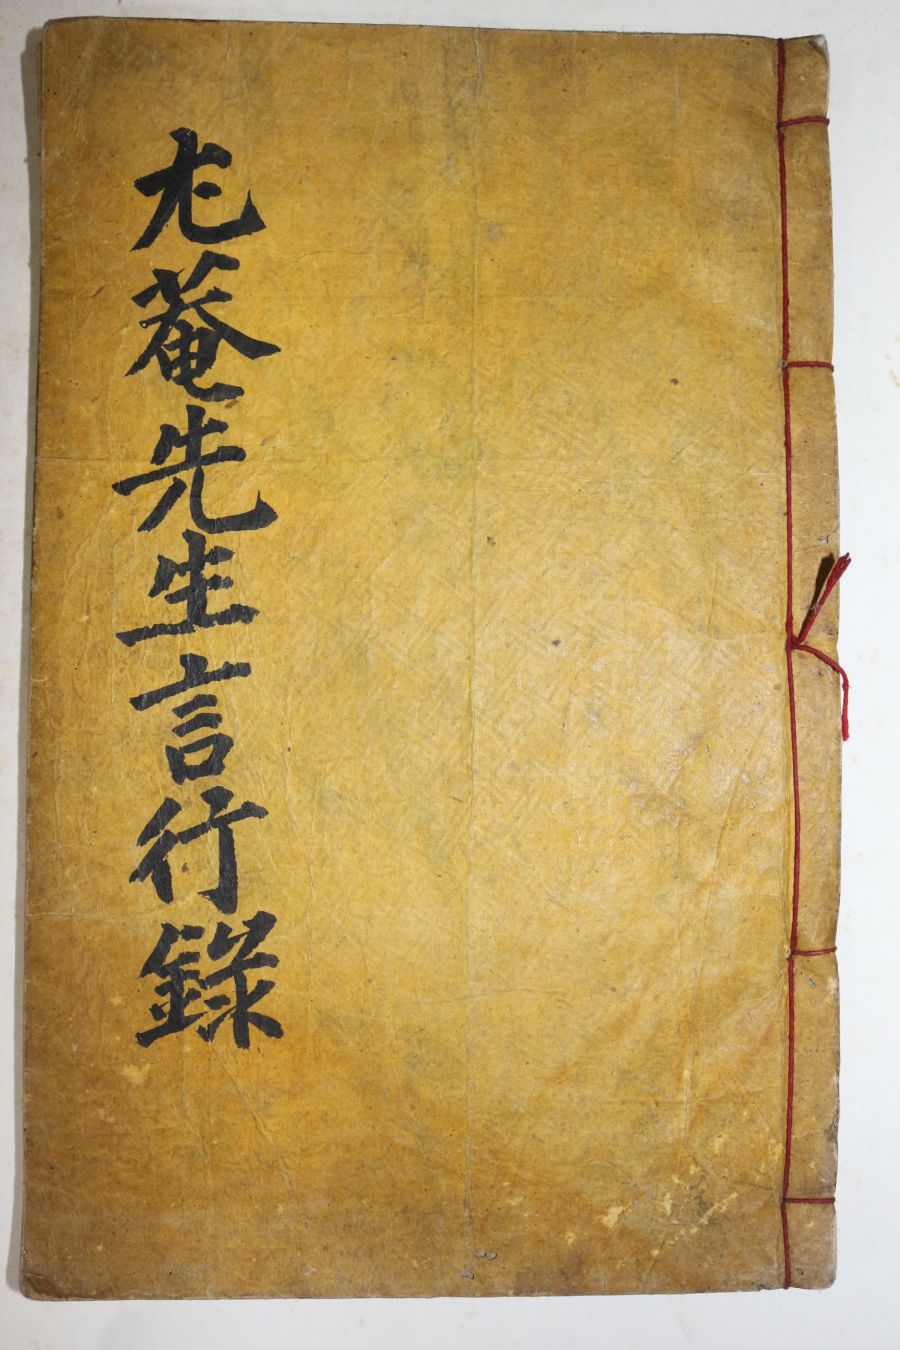 尨菴先生言行錄